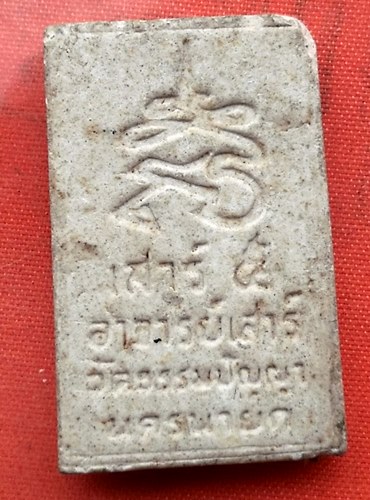 เสาร์ ๕
อาจารย์เสาร์
วัดธรรมปัญญา
นครนายก